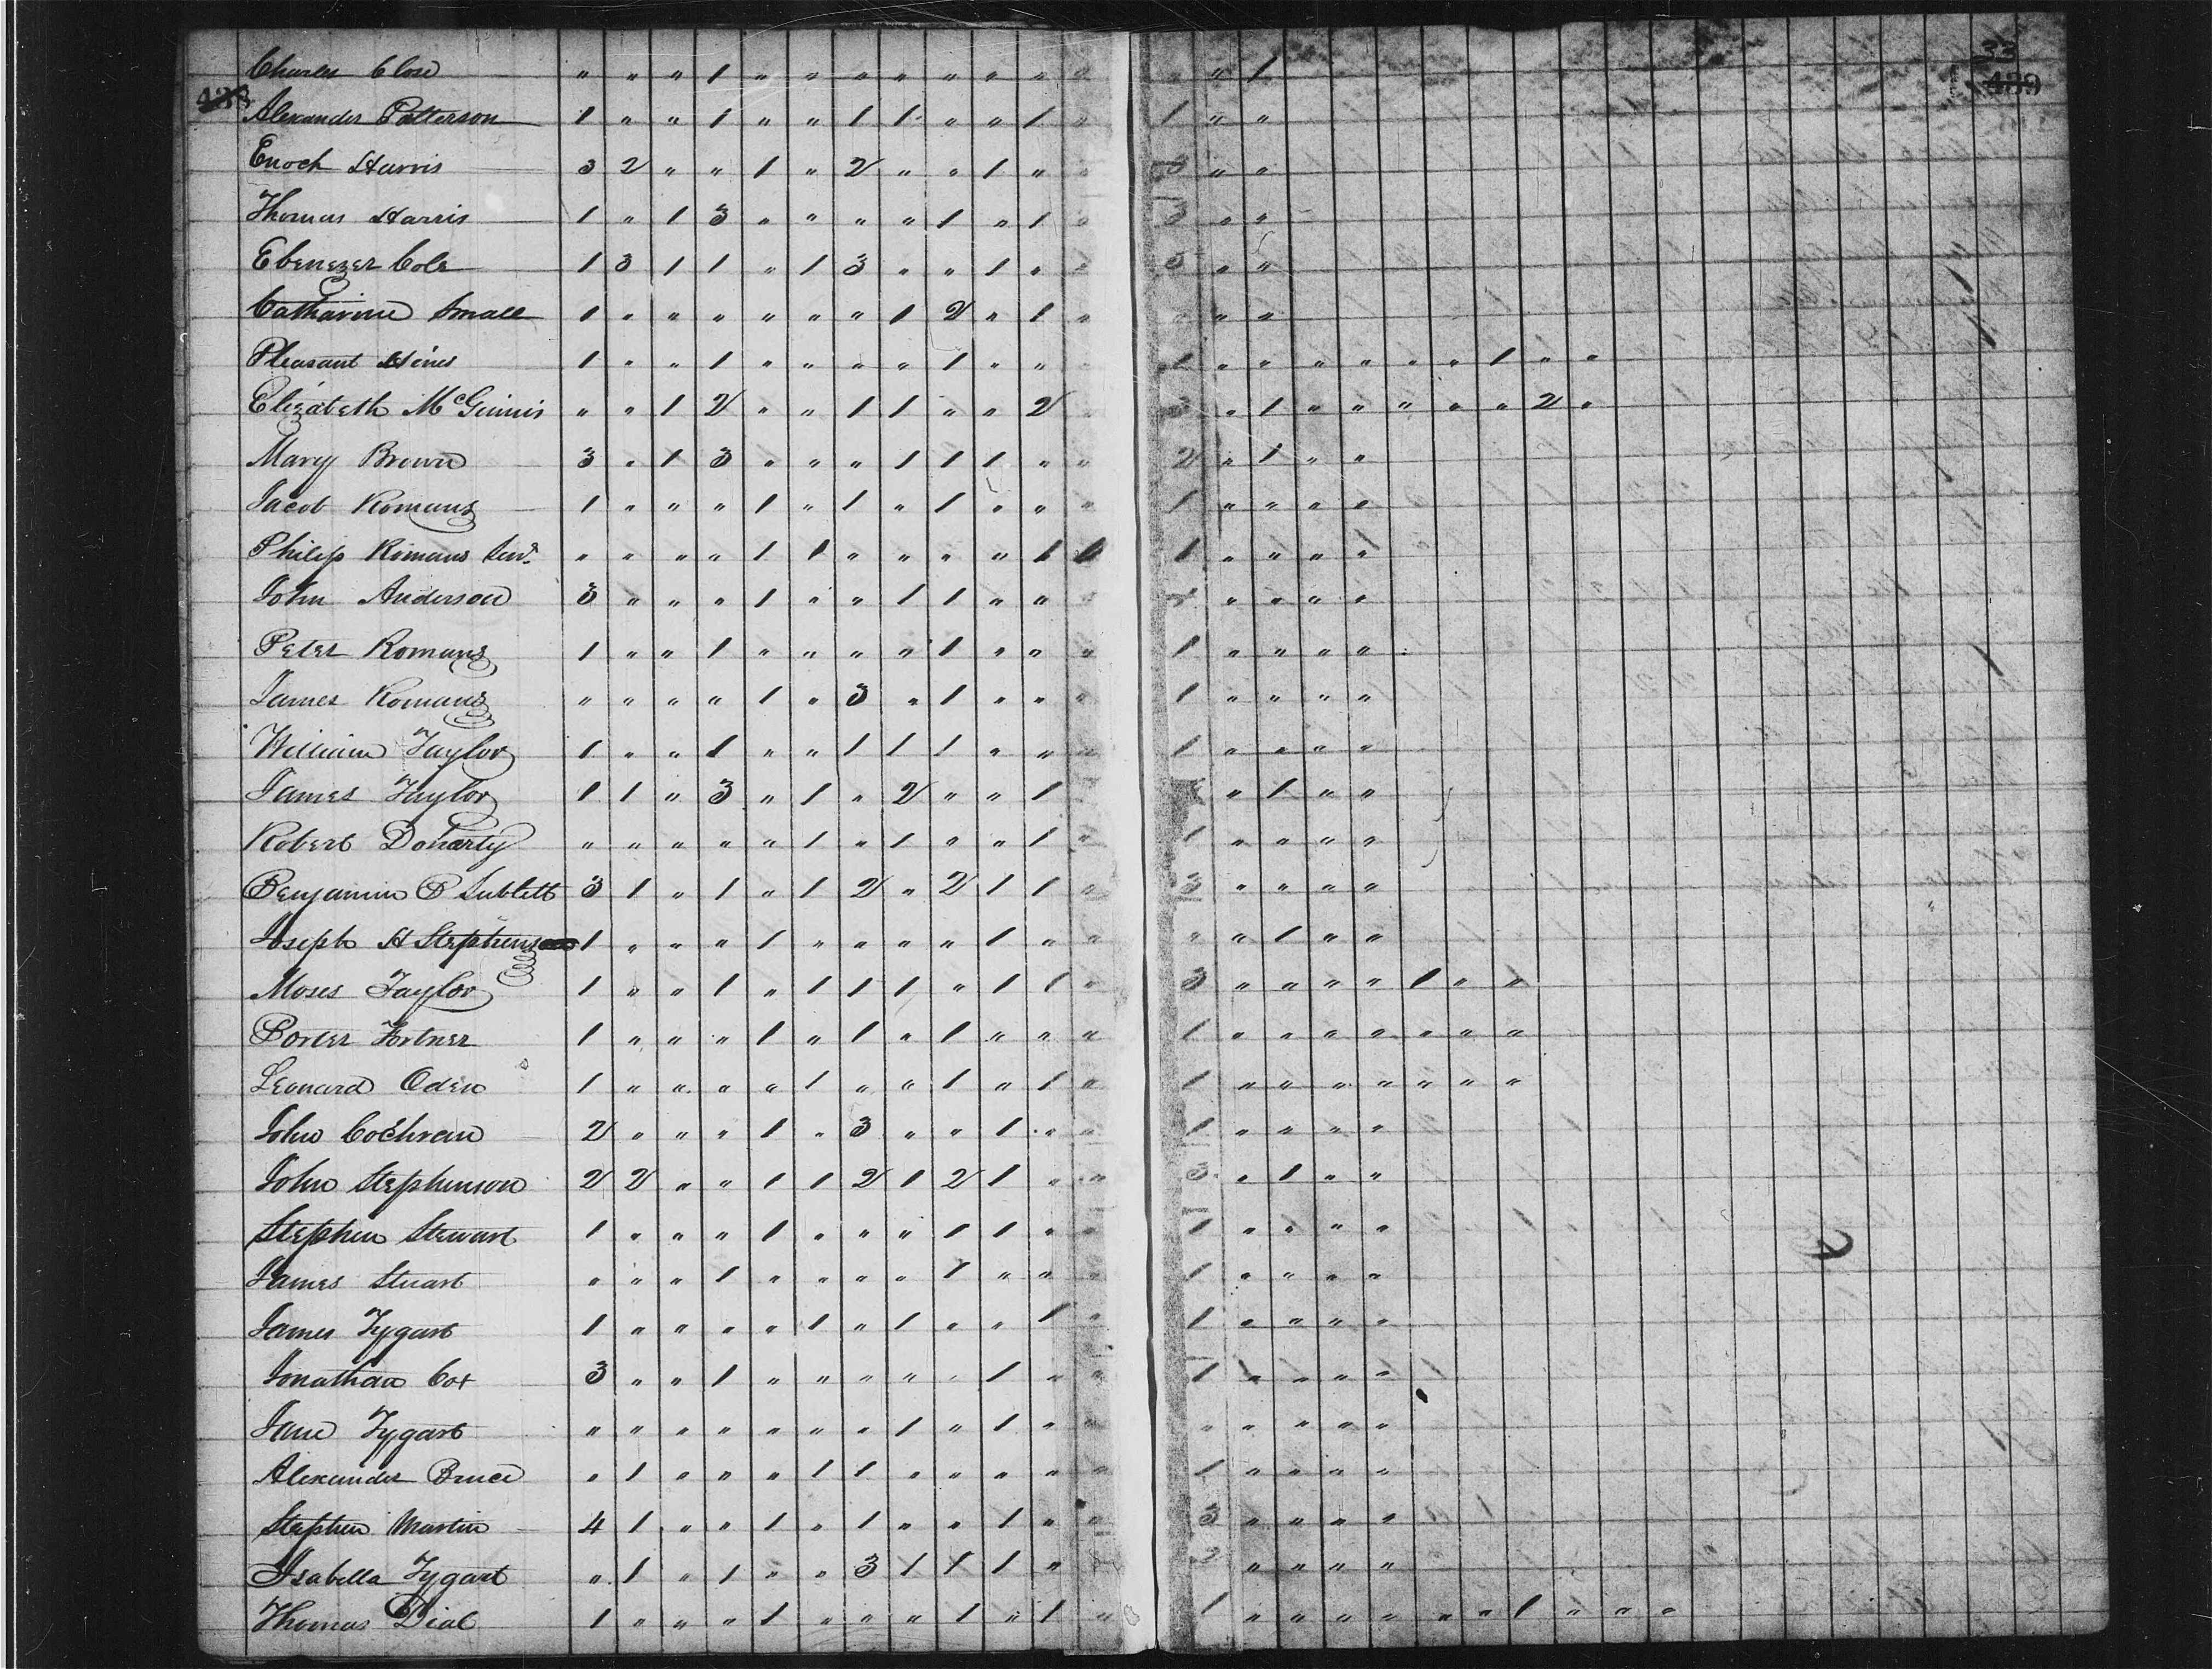 33
438 489
Charles Close " " " 1 " " " " " " " " " " 1
Alexander Patterson 1 " " 1 " " 1 1 " " 1 " 1 " "
Enoch Harris 3 2 " " 1 " 2 " " 1 " " 3 " "
Thomas Harris 1 " 1 3 " " " " 1 " 1 " 3 " "
Ebenezer Cole 1 3 1 1 " 1 3 " " 1 " " 3 " "
Catharine Small 1 " " " " " " 1 2 " 1 " " " "
Pleasant Hines 1 " " 1 " " " " 1 " " 1 " " " " " " 1 " "
Elizabeth McGinnis " " 1 2 " " 1 1 " " 2 3 " 1 " " " " " 2 "
Mary Brown 3 " 1 3 " " " 1 1 1 " " 2 " 1 " "
Jacob Romans 1 " " " 1 " 1 " 1 " " " 1 " " " "
Philip Romans Senr. " " " " 1 1 " " " " 1 1 1 " " " "
John Anderson 3 " " " 1 " " 1 1 " " " " " " "
Peter Romans 1 " " 1 " " " " 1 " " " 1 " " " "
James Romans " " " " 1 " 3 " 1 " " " 1 " " " "
William Taylor 1 " " 1 " " 1 1 1 " " " 1 " " " "
James Taylor 1 1 " 3 " 1 " 2 " " 1 " 1 " "
Robert Doharty " " " " " 1 " 1 " " 1 " 1 " " " "
Benjamin B Sublett 3 1 " 1 " 1 2 " 2 1 1 " 3 " " " "
Joseph H Stephens 1 " " " 1 " " " " 1 " " " " 1 " "
Moses Taylor 1 " " 1 " 1 1 1 " 1 1 " 3 " " " " 1 " 1
Porter Fortner 1 " " " 1 " 1 " 1 " " " 1 " " " " " " "
Leonard Oden 1 " " " " 1 " " 1 " 1 " 1 " " " " " " "
John Cochran 2 " " " 1 " 3 " " 1 " " 1 " " " "
John Stephenson 2 2 " " 1 1 2 1 2 1 " " 3 " 1 " "
Stephen Stewart 1 " " " 1 " " " 1 1 " " 1 " " " "
James Stuart " " " 1 " " " " 1 " " " 1 " " " "
James Tygart 1 " " " " 1 " 1 " " 1 " 1 " " " "
Jonathan Cox 3 " " 1 " " " " " 1 " " 1 1 " " "
Jane Tygart " " " " " " " 1 " 1 " " " " " " "
Alexander Bruce " 1 " " " 1 1 " " " " " 1 " " " "
Stephen Martin 4 1 " " 1 " 1 " " 1 " " 3 " " " "
Isabella Tygart " 1 " 1 " " 3 1 1 1 " " " " "
Thomas Dial 1 " " " 1 " " " 1 " 1 " 1 " " " " " " 1 " " "